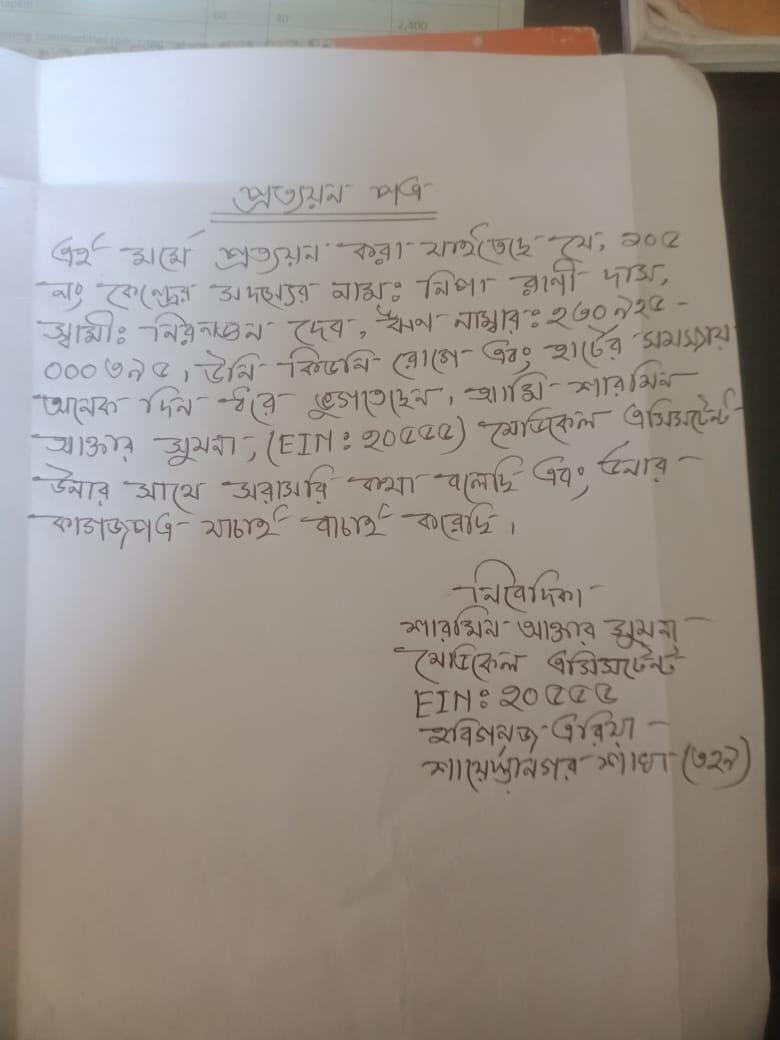 60
40
2,400
প্রত্যয়ন পত্র
এই মর্মে প্রত্যয়ন করা যাইতেছে যে, ২০৫
নং কেন্দ্রের সদস্যের নাম: নিপা রানী দাস,
স্বামী: নিরনঞ্জন দেব, ঋণ নাম্বার: ২৬০৭২৫-
০০০৬৭৫, উনি কিডনি রোগে এবং হার্টের সমস্যায়
অনেক দিন ধরে ভুগতেছেন, আমি শারমিন
আক্তার সুমনা, (EIN: ২০৫৫৫) মেডিকেল এসিসটেন্ট
উনার সাথে সরাসরি কথা বলেছি এবং উনার
কাগজপত্র যাচাই বাচাই করেছি।
নিবেদিকা
শারমিন আক্তার সুমনা
মেডিকেল এসিসটেন্ট
EIN: ২০৫৫৫
হবিগনজ এরিয়া
শায়েস্তানগর শাখা (৩২৭)